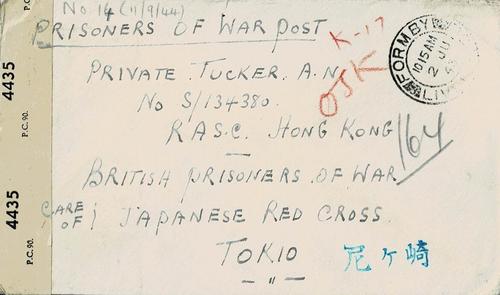 No. 14 (11/9/44)
PRISONERS OF WAR POST
K-17
PRIVATE TUCKER. A.N.
OJK
No S/134380.
R.A.S.C. HONG KONG
164
BRITISH PRISONERS OF WAR
CARE OF; JAPANESE RED CROSS.
TOKIO
尼ケ崎
4435
P.C. 90.
4435
P.C. 90.
FORMBY
1015 AM
2
LIV